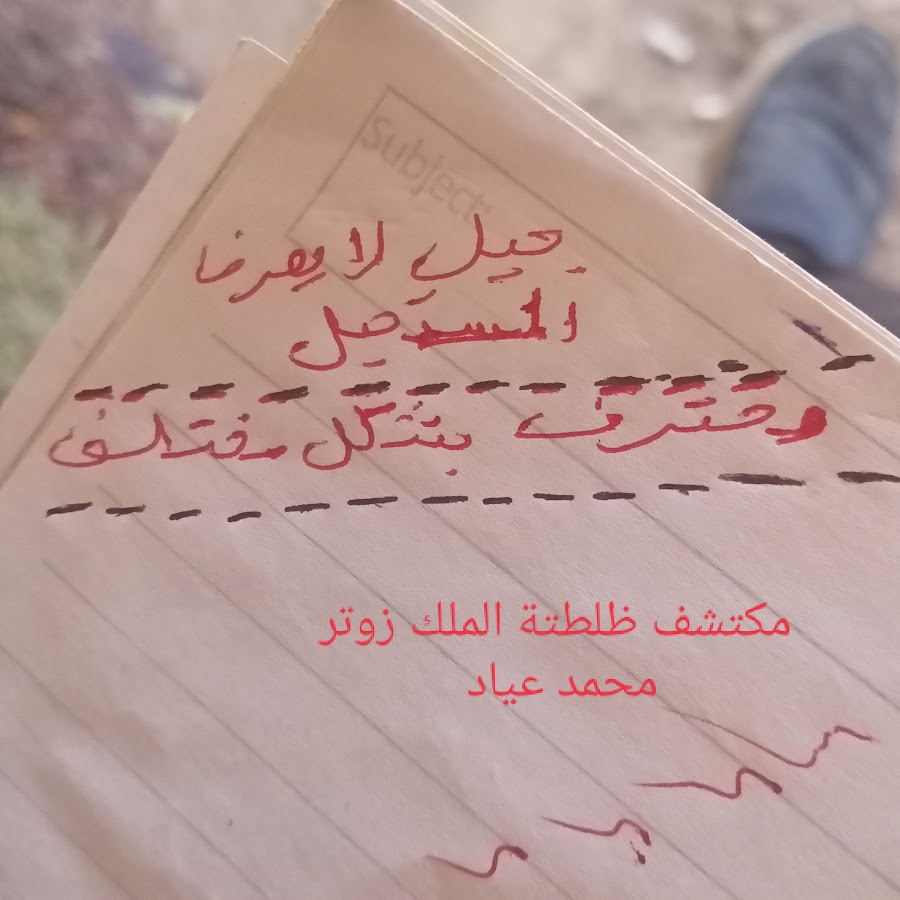 Subject:
جيل لا يعرف
المستحيل
محترف بتذكل
مكتشف ظلطتة الملك زوتر
محمد عياد